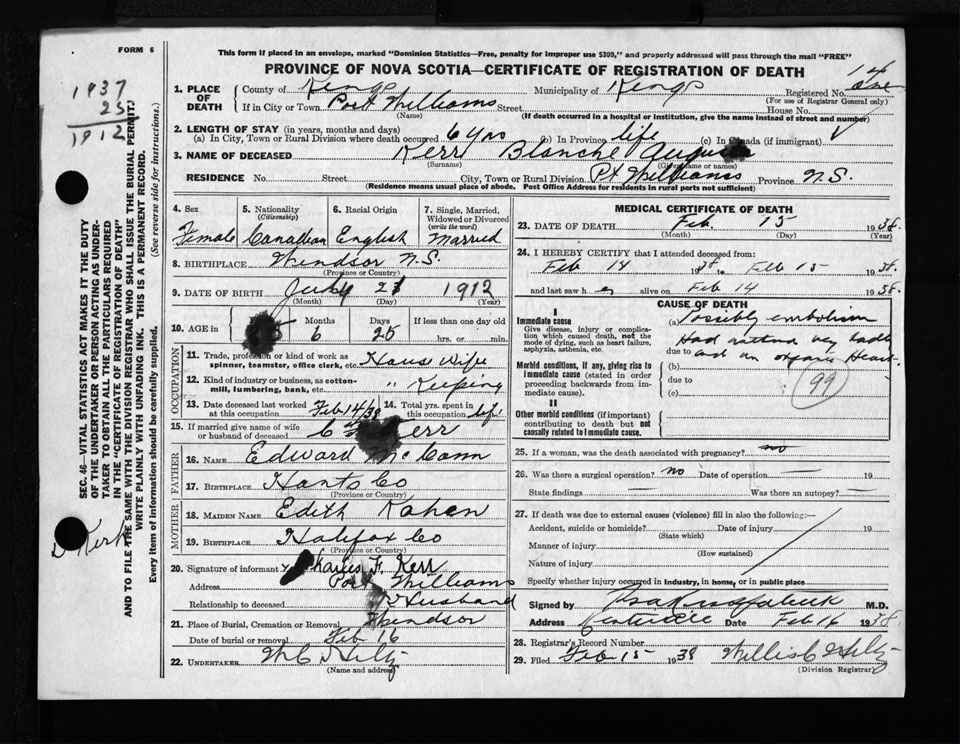 FORM 6
This form if placed in an envelope, marked "Dominion Statistics—Free, penalty for improper use $300," and properly addressed will pass through the mail "FREE"
PROVINCE OF NOVA SCOTIA—CERTIFICATE OF REGISTRATION OF DEATH
1937
25
1912
1. PLACE OF DEATH
County of Kings Municipality of Kings Registered No.
(For use of Registrar General only)
If in City or Town Port Williams Street House No.
(Name) (If death occurred in a hospital or institution, give the name instead of street and number)
2. LENGTH OF STAY (in years, months and days)
(a) In City, Town or Rural Division where death occurred 6 yrs (b) In Province life (c) In Canada (if immigrant)
3. NAME OF DECEASED Kerr Blanche
(Surname) (Given name or names)
RESIDENCE No. Street City, Town or Rural Division Pt Williams Province N.S.
(Residence means usual place of abode. Post Office Address for residents in rural parts not sufficient)
SEC. 46—VITAL STATISTICS ACT MAKES IT THE DUTY
OF THE UNDERTAKER OR PERSON ACTING AS UNDER-
TAKER TO OBTAIN ALL THE PARTICULARS REQUIRED
IN THE "CERTIFICATE OF REGISTRATION OF DEATH"
AND TO FILE THE SAME WITH THE DIVISION REGISTRAR WHO SHALL ISSUE THE BURIAL PERMIT.
WRITE PLAINLY WITH UNFADING INK. THIS IS A PERMANENT RECORD.
Every item of information should be carefully supplied. (See reverse side for instructions.)
4. Sex Female
5. Nationality (Citizenship) Canadian
6. Racial Origin English
7. Single, Married, Widowed or Divorced (write the word) Married
8. BIRTHPLACE Windsor N.S.
(Province or Country)
9. DATE OF BIRTH July 21 1912
(Month) (Day) (Year)
10. AGE in 25 Months 6 Days 25 If less than one day old
hrs. or min.
OCCUPATION
11. Trade, profession or kind of work as spinner, teamster, office clerk, etc. House Wife
12. Kind of industry or business, as cotton-mill, lumbering, bank, etc. " Keeping
13. Date deceased last worked at this occupation Feb 14/38
14. Total yrs. spent in this occupation life
15. If married give name of wife or husband of deceased Kerr
FATHER
16. NAME Edward McCann
17. BIRTHPLACE Hants Co
(Province or Country)
MOTHER
18. MAIDEN NAME Edith Kahen
19. BIRTHPLACE Halifax Co
(Province or Country)
20. Signature of informant Charles F. Kerr
Address Port Williams
Relationship to deceased Husband
21. Place of Burial, Cremation or Removal Windsor
Date of burial or removal Feb 16
22. UNDERTAKER
(Name and address)
MEDICAL CERTIFICATE OF DEATH
23. DATE OF DEATH Feb. 15 1938.
(Month) (Day) (Year)
24. I HEREBY CERTIFY that I attended deceased from:
Feb 14 1938 to Feb 15 1938.
and last saw her alive on Feb 14 1938.
CAUSE OF DEATH
I
Immediate cause
Give disease, injury or complication which caused death, not the mode of dying, such as heart failure, asphyxia, asthenia, etc.
(a) Possibly embolism
Had asthma very badly
due to and an organic Heart
Morbid conditions, if any, giving rise to immediate cause (stated in order proceeding backwards from immediate cause).
(b)
due to
(c)
99
II
Other morbid conditions (if important) contributing to death but not causally related to immediate cause.
25. If a woman, was the death associated with pregnancy? no
26. Was there a surgical operation? no Date of operation — 19
State findings — Was there an autopsy? —
27. If death was due to external causes (violence) fill in also the following:—
Accident, suicide or homicide? Date of injury 19
(State which)
Manner of injury
(How sustained)
Nature of injury
Specify whether injury occurred in Industry, in home, or in public place
Signed by M.D.
Address Centreville Date Feb 16 1938.
28. Registrar's Record Number
29. Filed Feb 15 1938
(Division Registrar)